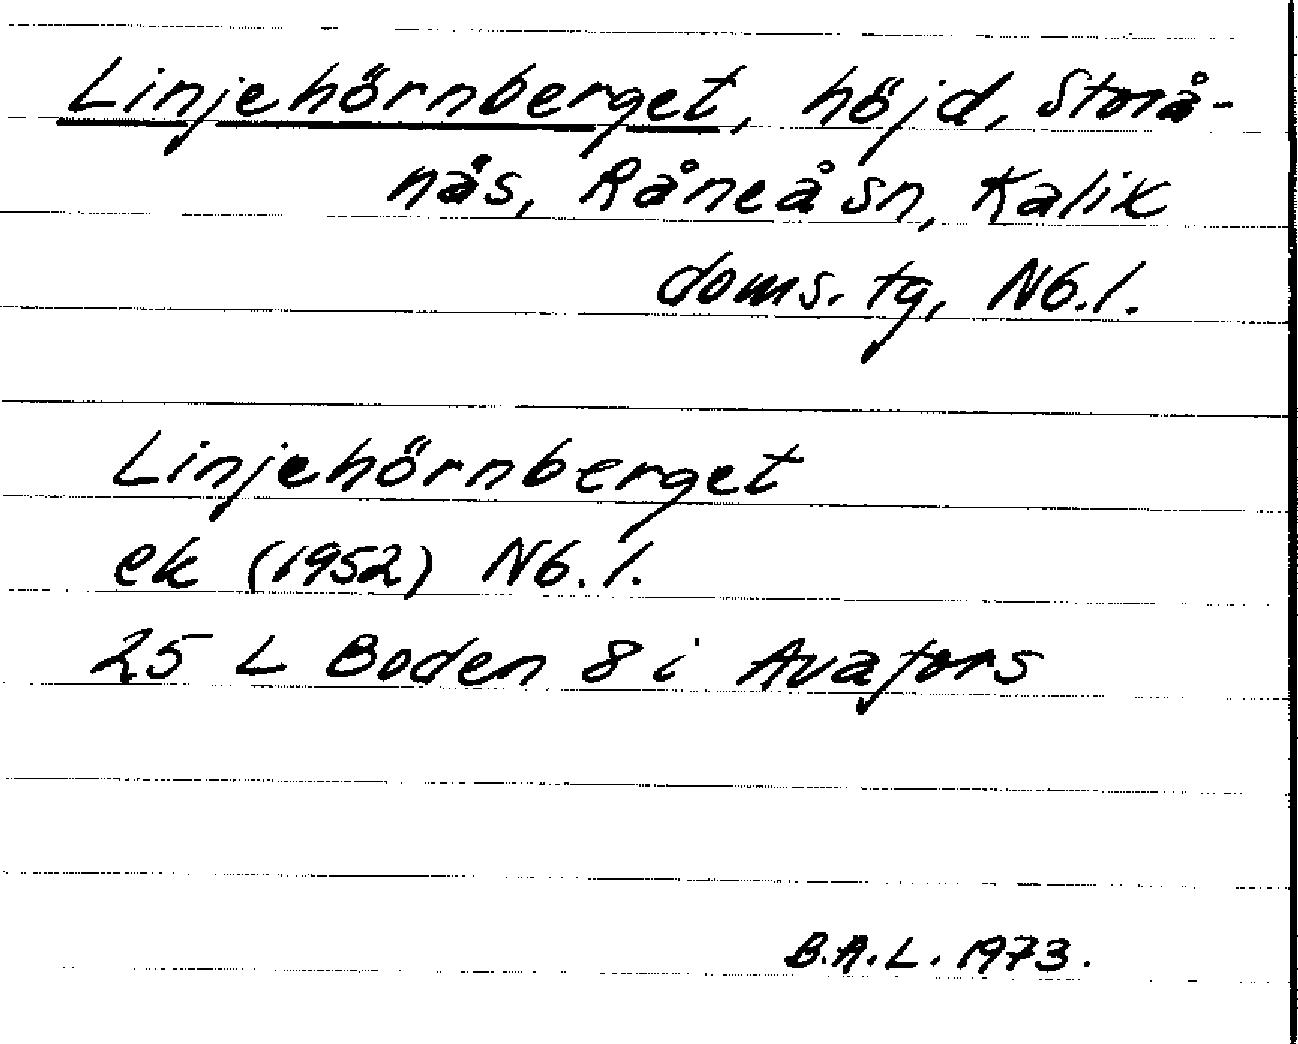 Linjehörnberget, höjd, Storå-
näs, Råneå sn, Kalix
doms. tg, Nb. l.
Linjehörnberget
ek (1952) Nb. l.
25 L Boden 8 i Avafors
B.A.L. 1973.